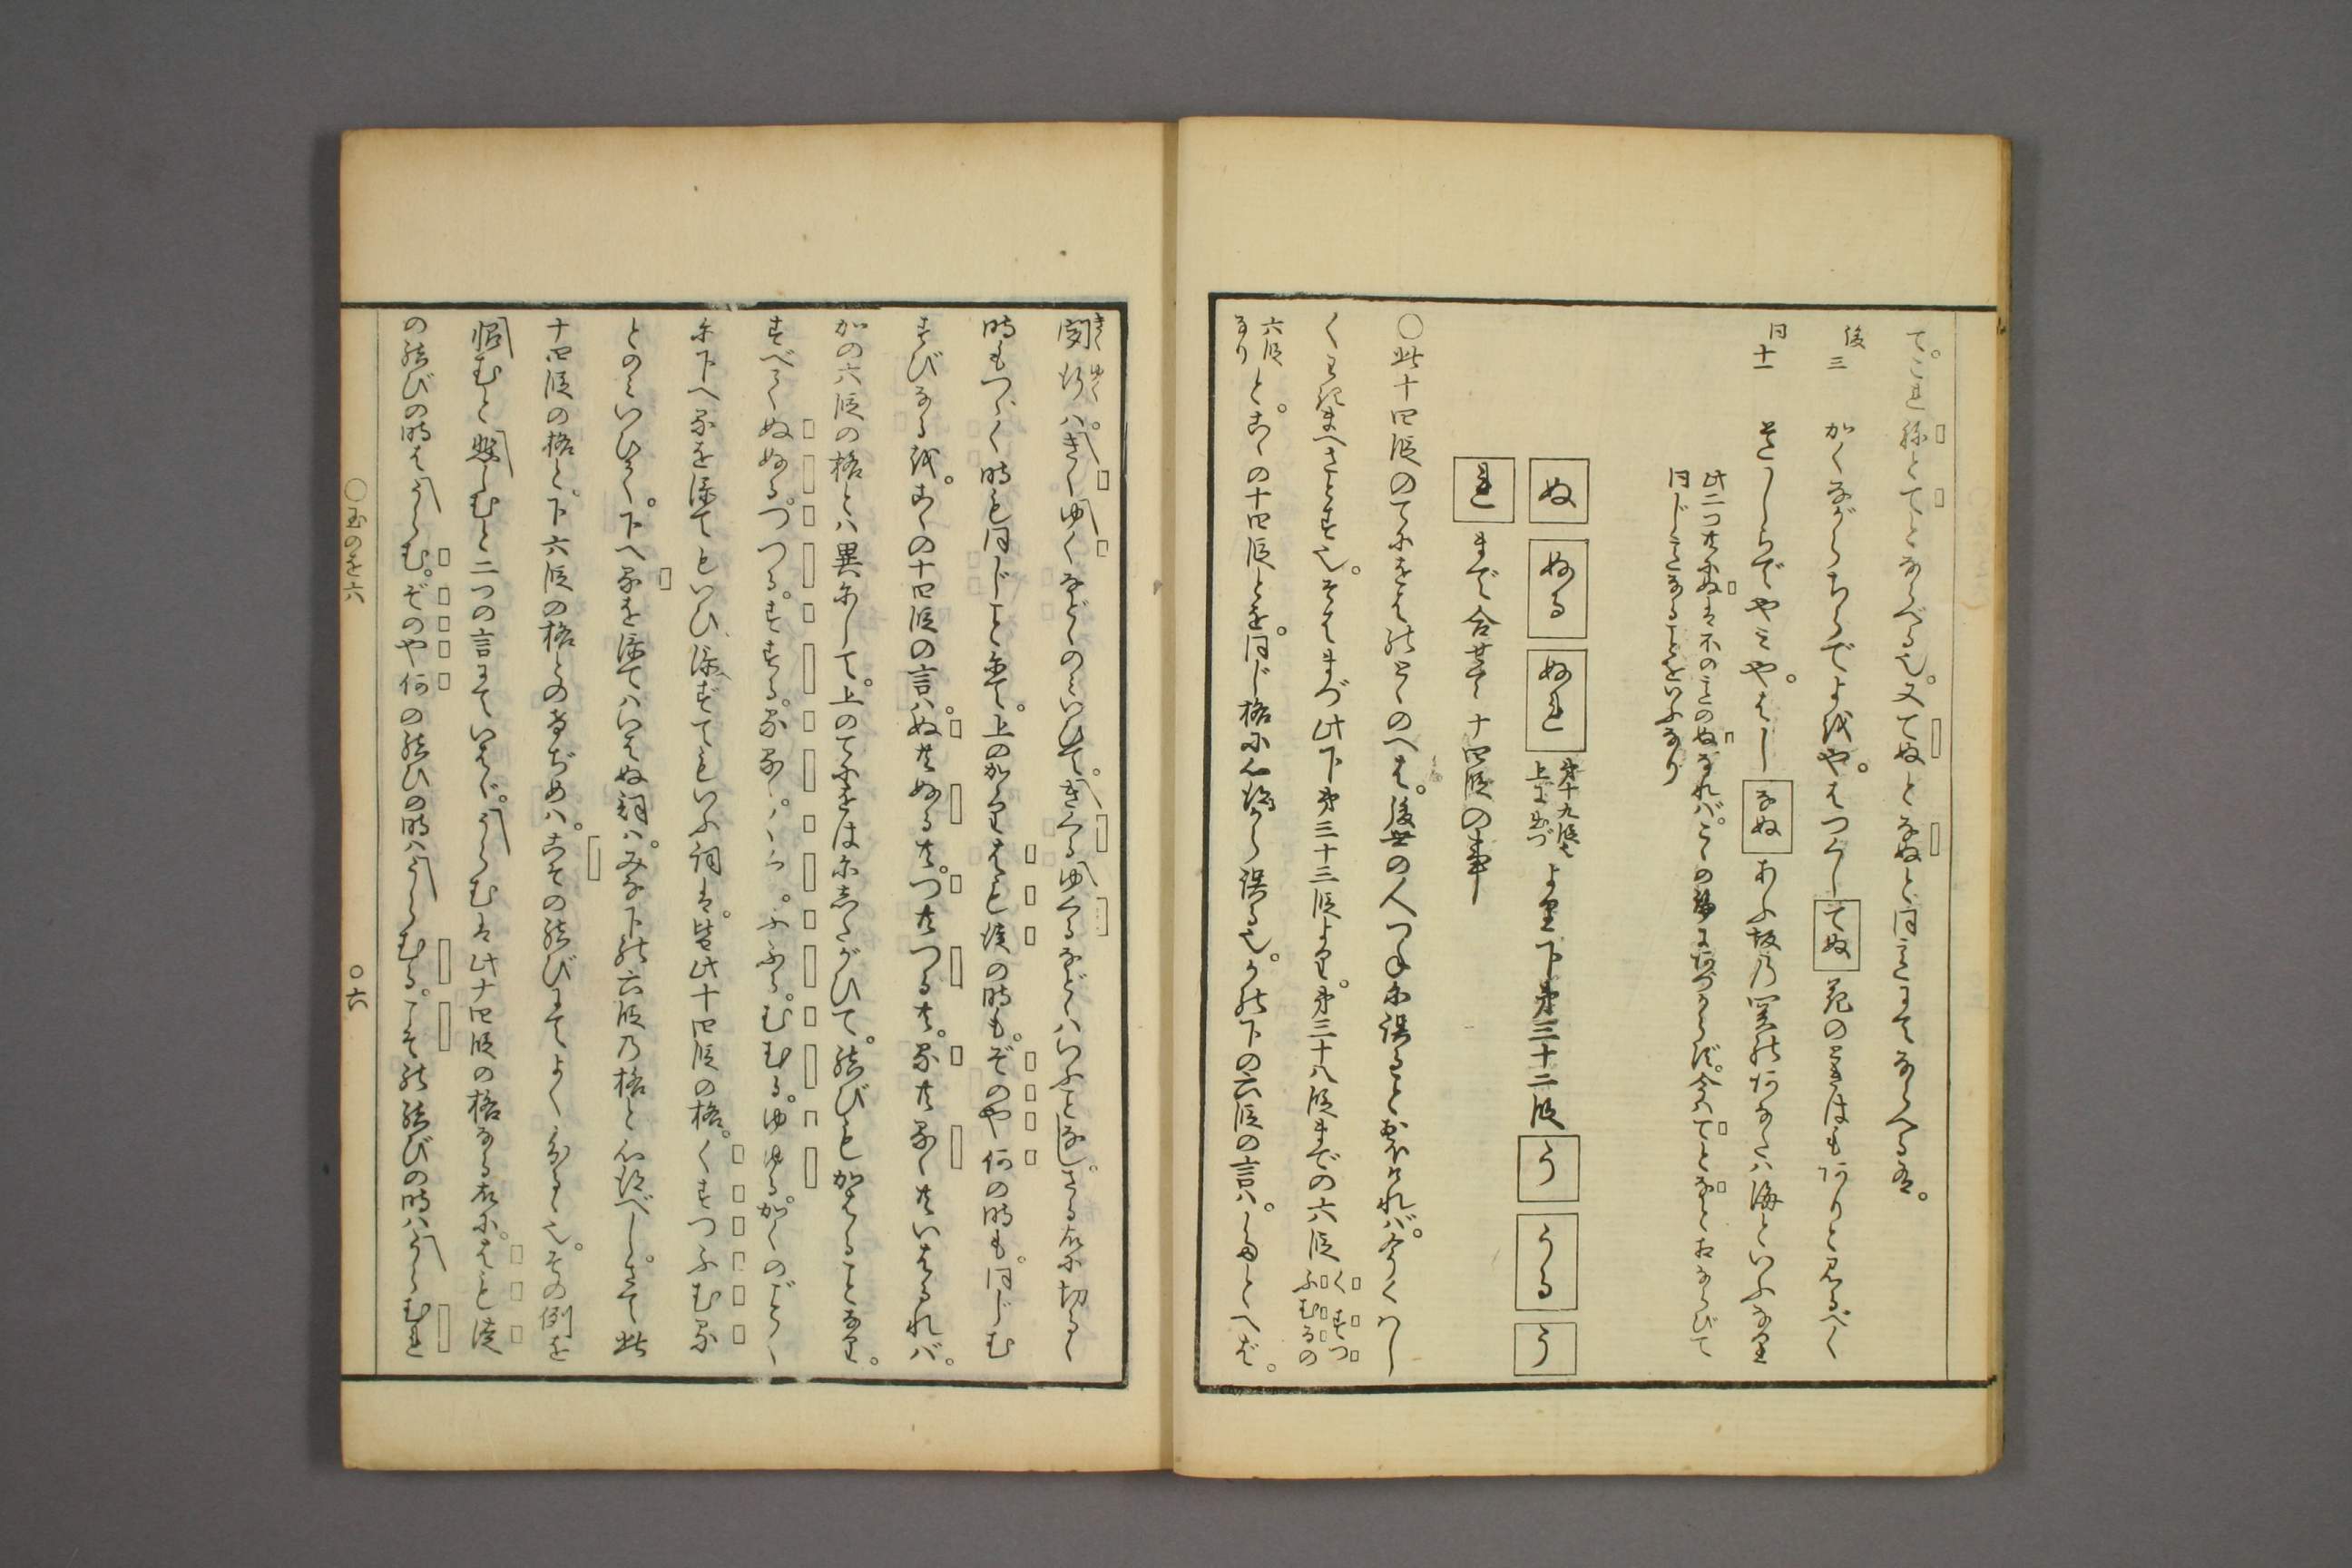 て。これ祢とてとならべる也。又てぬとなぬと同意にてならへるは。
後三　かくながらちらでよをやはつくしてぬ花のときはもありと見るべく
同十一　そらしらでやみやはしなぬあふ坂の関のあなたハ海といふなり
此二つ共にぬは不の意のぬなれバ。こゝの格にあづからず。今ハてとなとおならびて
同じ意なることをいふなり
ぬ　ぬる　ぬれ　第十九段は上に出づ　より下第三十二段　う　うる　う
れ　まで合せて十四段の事
〇此十四段のてにをはのとゝのへは。後世の人つねに誤ることおほけれバ。今くハし
くわきまへさとす也。そはまづ此下第三十三段より。第三十八段までの六段　くすつふむるの
六段なり　と。こゝの十四段とを。同じ格に心得て誤る也。かの下の六段の言ハ。たとへば。
聞　行ハ。きくゆくなどのミいひて。きくるゆくるなどハいふことなし。さる故に切るゝ
時もつゞく時も同じことにて。上のかゝりはも徒の時も。ぞのや何の時も。同じむ
すびなるを。こゝの十四段の言ハ。ぬ共ぬる共。つ共つる共。る共るゝ共いはるれバ。
かの六段の格とハ異にして。上のてにをはにしたがひて。結びもかはることなり。
すべてぬぬる。つつる。すする。るるゝ。くくる。ふふる。むむる。ゆゆる。かくのごとく
に下へるを添てもいひ、添ずてもいふ詞は。皆此十四段の格。くすつふむる
とのミいひて。下へるを添てハいはぬ詞ハ。みな下の六段の格と心得べし。さて此
十四段の格と。下六段の格とのけぢめハ。こその結びにてよく分るゝ也。その例を
恨むと歎くむと二つの言にていはゞ。うらむは此十四段の格なる故に。はも徒
の結びの時はうらむ。ぞのや何の結ひの時ハうらむる。こその結びの時ハうらむれ
〇玉のを六　〇六